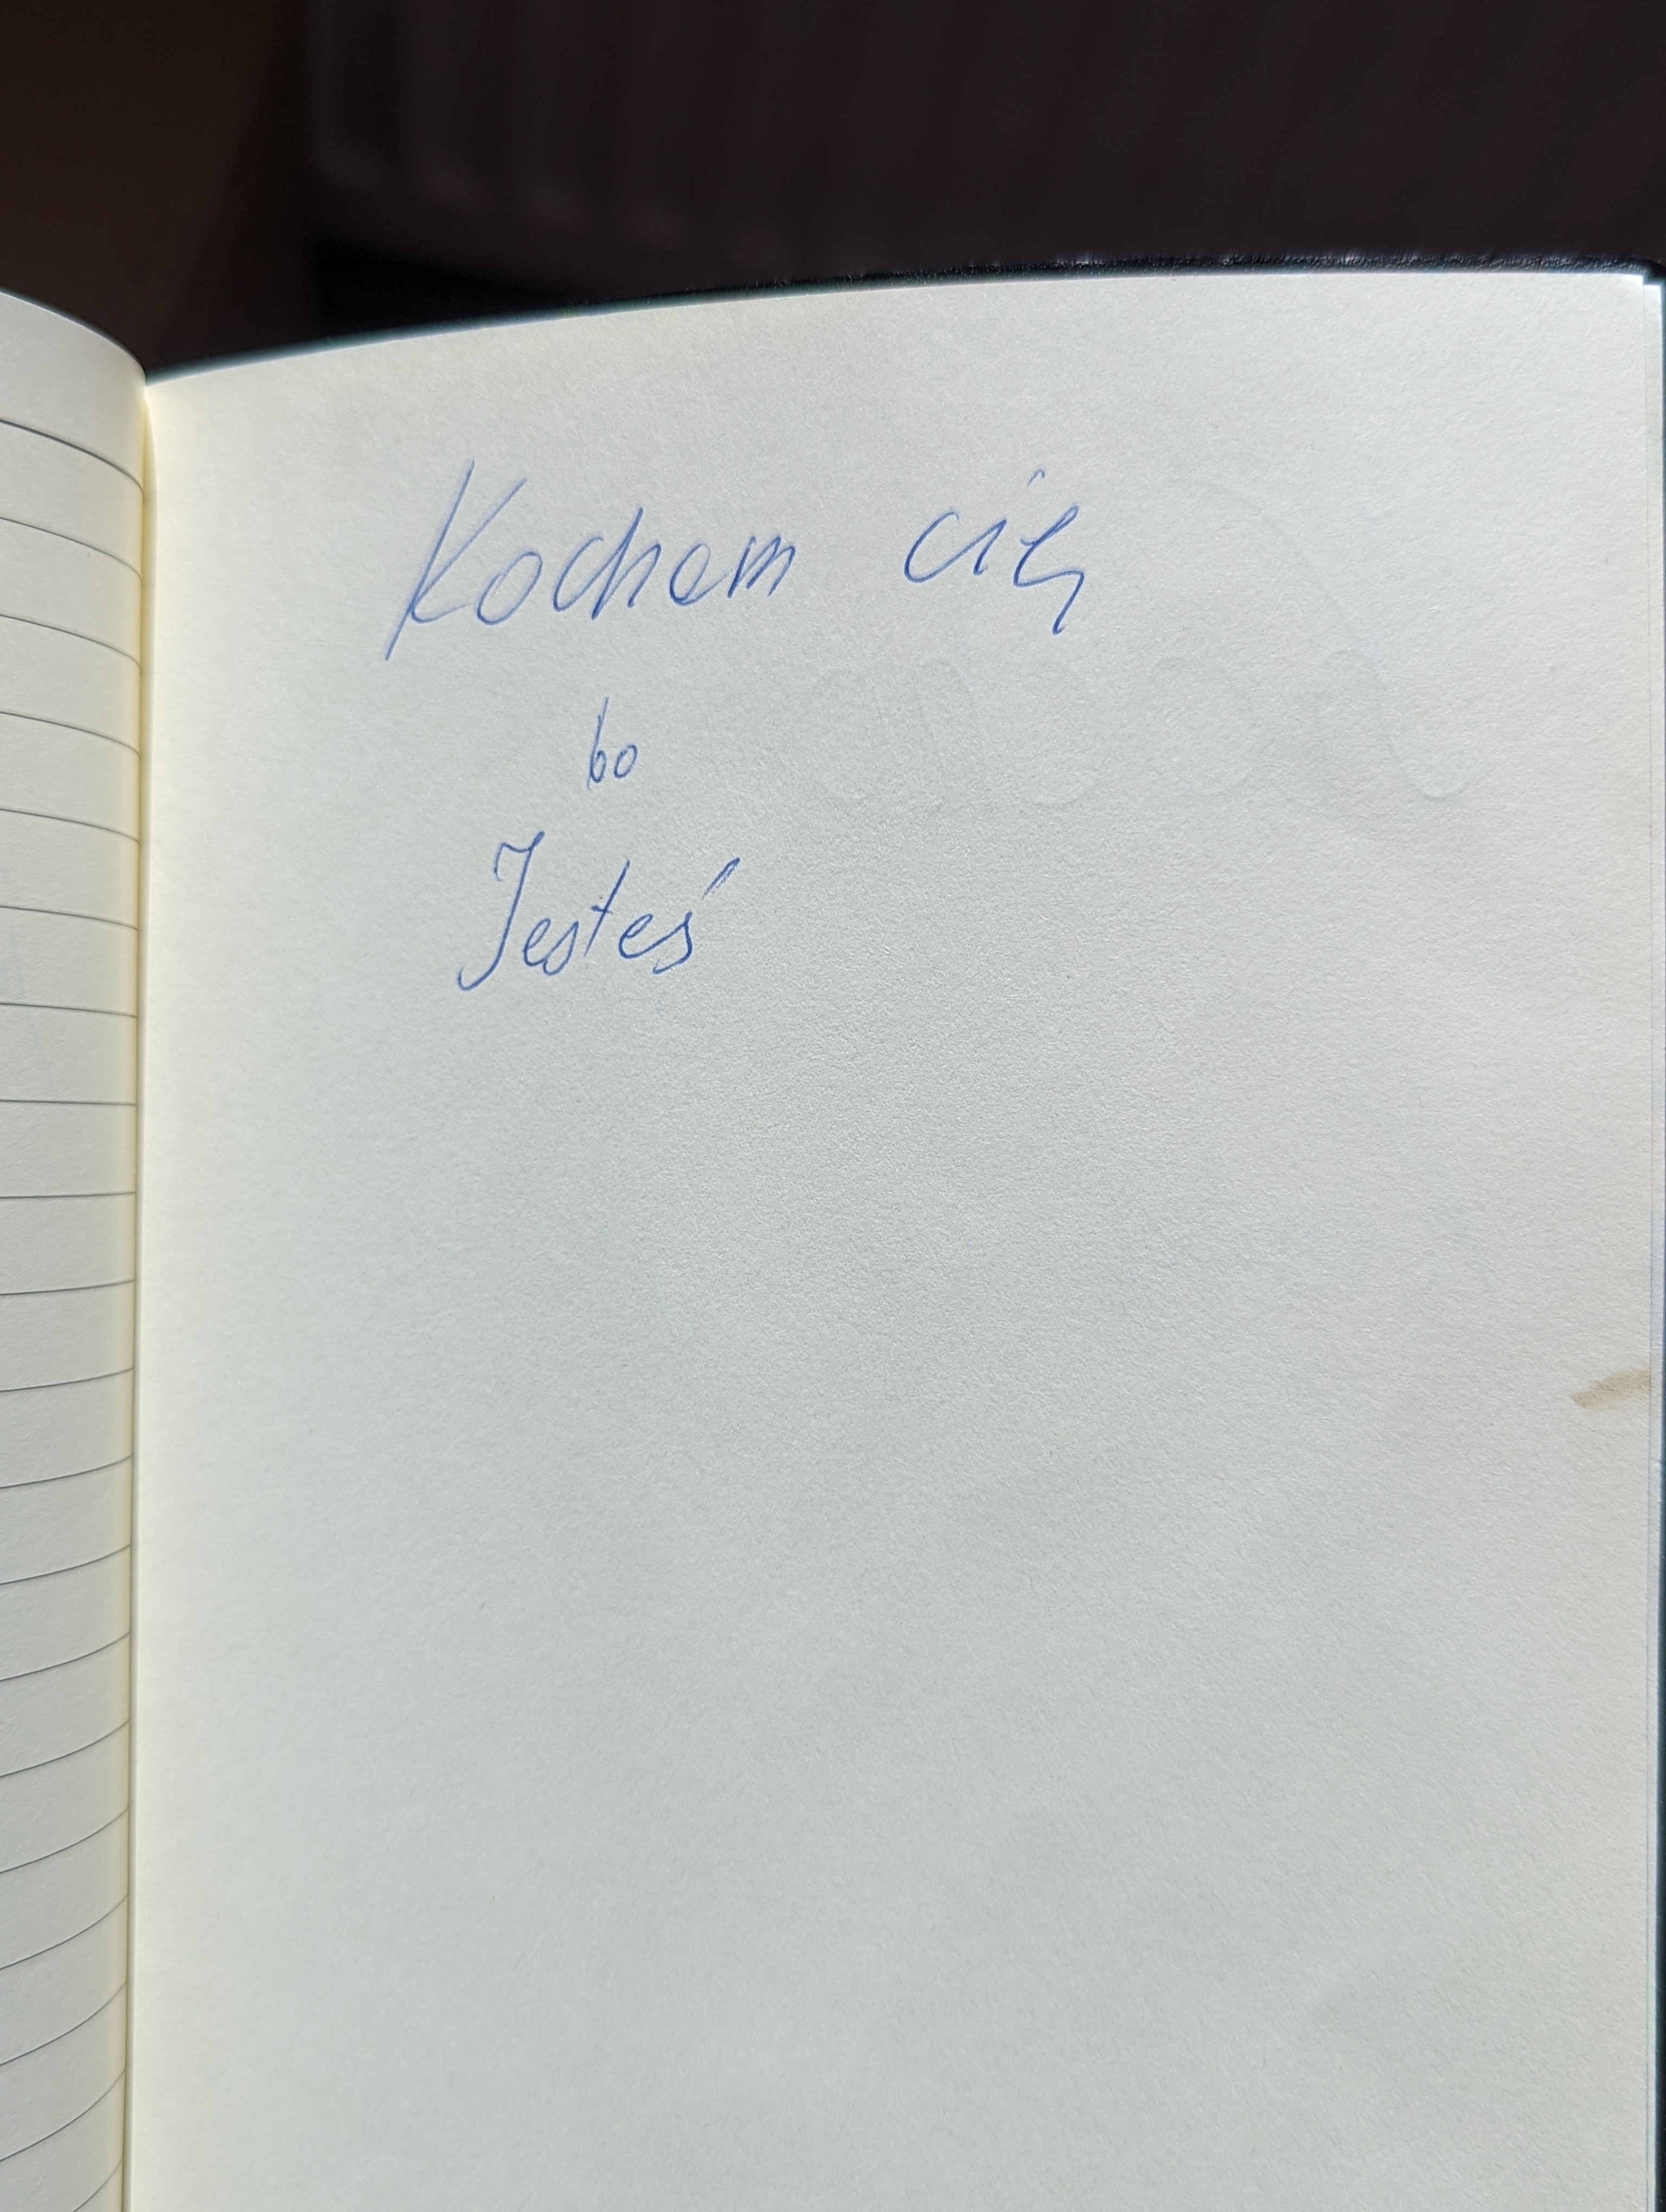 Kocham cię
bo
Jesteś